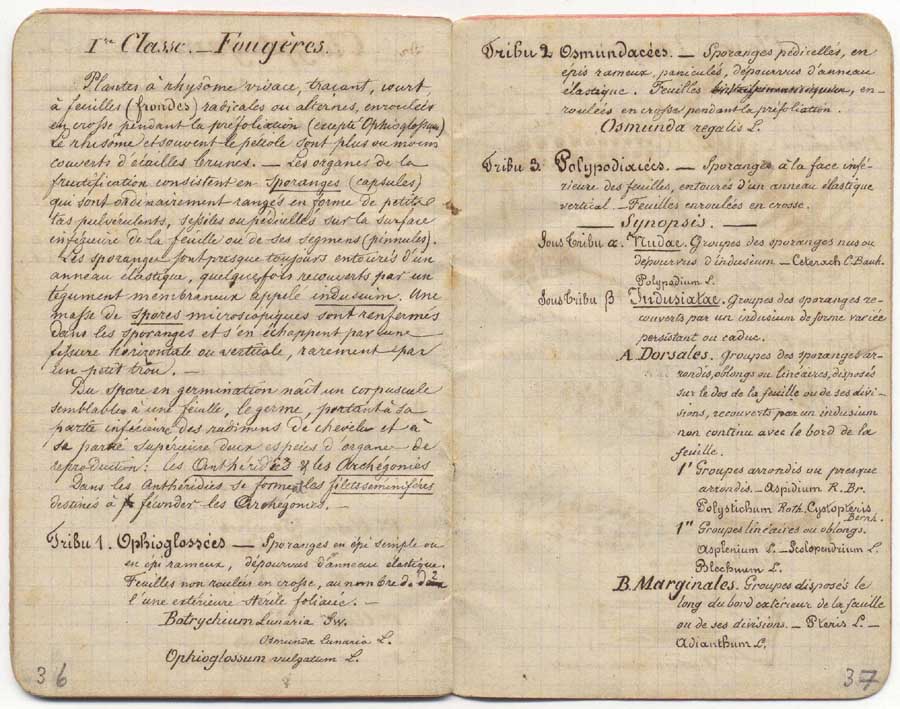 Ire Classe. — Fougères.
Plantes à rhysôme vivace, traçant, court,
à feuilles (frondes) radicales ou alternes, enroulées
en crosse pendant la préfoliation (excepté Ophioglossum)
Le rhisôme et souvent le pétiole sont plus ou moins
couverts d'écailles brunes. — Les organes de la
frutification consistent en Sporanges (capsules)
qui sont ordinairement rangés en forme de petits
tas pulvérulents, sessiles ou pédicellés sur la surface
inférieure de la feuille ou de ses segmens (pinnules).
Les sporanges sont presque toujours entourés d'un
anneau élastique, quelquefois recouverts par un
tégument membraneux appelé indusuim. Une
masse de spores microscopiques sont renfermés
dans les sporanges et s'en échappent par une
fissure horizontale ou verticale, rarement par
un petit trou. —
Du spore en germination naît un corpuscule
semblable à une feuille, le germe, portant à sa
partie inférieure des radimens de chevelu et à
sa partie supérieure deux espèces d'organes de
reproduction: les Anthéridies & les Archégonies
Dans les Anthéridies se forment les filets séminifères
destinés à féconder les Archégonies. —
Tribu 1. Ophioglossées — Sporanges en épi simple ou
en épi rameux, dépourvus d'anneau élastique.
Feuilles non roulées en crosse, au nombre d. 2
l'une extérieure stérile foliacée. —
Botrychium Lunaria Sw.
Osmunda lunaria L.
Ophioglossum vulgatum L.
36
Tribu 2 Osmundacées. — Sporanges pédicellés, en
épis rameux, paniculés, dépourvus d'anneau
élastique. Feuilles en-
roulées en crosse pendant la préfoliation.
Osmunda regalis L.
Tribu 3. Polypodiacées. — Sporanges à la face infé-
rieure des feuilles, entourés d'un anneau élastique
vertical. — Feuilles enroulées en crosse.
— Synopsis. —
Sous tribu α. Nudae. Groupes des sporanges nus ou
dépourvus d'indusium — Ceterach C. Bauh.
Polypodium L.
Sous tribu β Indusiatae. Groupes des sporanges re-
couverts par un indusium de forme variée
persistant ou caduc.
A. Dorsales. Groupes des sporanges ar-
rondis, oblongs ou linéaires, disposés
sur le dos de la feuille ou de ses divi-
sions, recouverts par un indusium
non continu avec le bord de la
feuille.
1' Groupes arrondis ou presque
arrondis. — Aspidium R. Br.
Polystichum Roth. Cystopteris
Bernh.
1" Groupes linéaires ou oblongs.
Asplenium L. — Scolopendrium L.
Blechnum L.
B. Marginales. Groupes disposés le
long du bord extérieur de la feuille
ou de ses divisions. — Pteris L. —
Adianthum L.
37